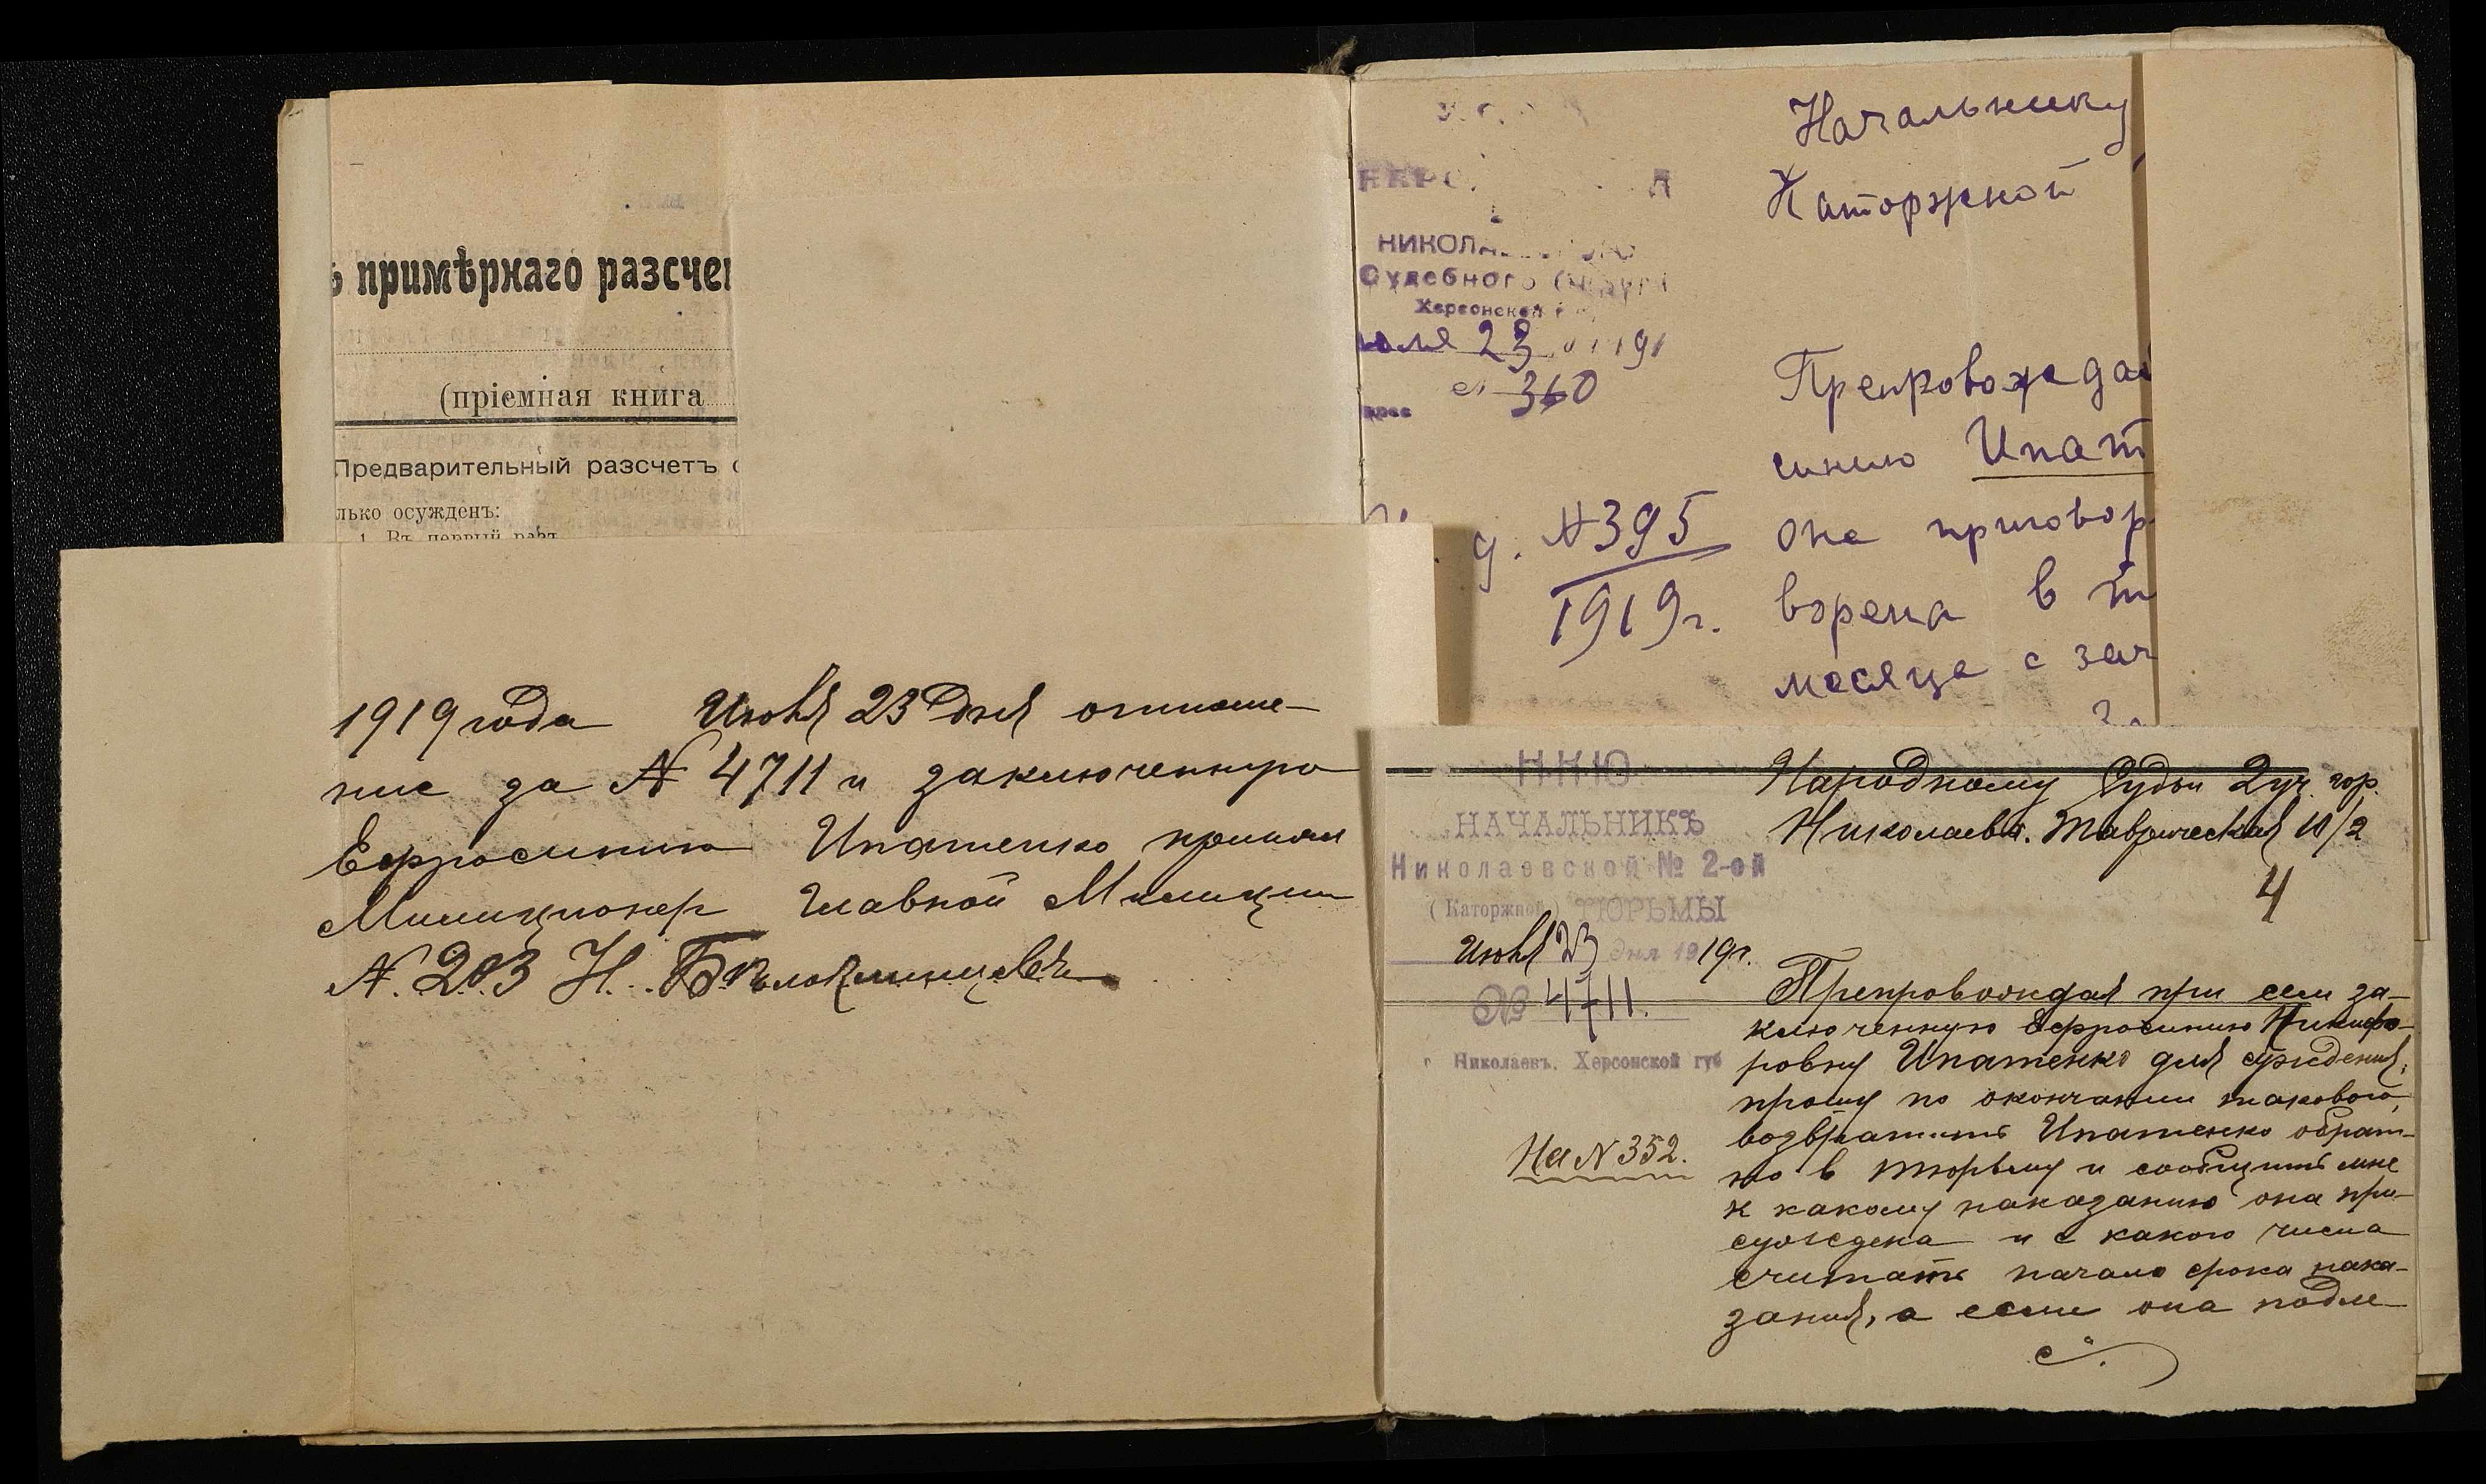 примѣрнаго разсчет
(пріемная книга
Предварительный разсчетъ
лько осужденъ:
1. Въ первый разъ
1919 года Июня 23 дня отноше-
ние за N 4711 и заключенную
Ефросинию Ипатенко принял
Милиционер Главной Милиции
N. 203 Н.
Начальнику
Каторжной
НИКОЛА
Судебного Округа
Херсонской
юля 23 191
360
д. N 395
1919 г.
Препровождая
синию Ипат
она приговор
ворена в т
месяца с зач
Н.К.Ю.
НАЧАЛЬНИКЪ
Николаевской № 2-ой
(Каторжной) ТЮРЬМЫ
Июня 23 дня 1919 г.
№ 4711.
г. Николаевъ, Херсонской губ
На N 352.
Народному Судьи 2 уч. гор.
Николаева. Таврическая 10/2
4
Препровождая при сем за-
ключенную Ефросинию Никифо-
ровну Ипатенко для суждения,
прошу по окончании такового,
возвратить Ипатенко обрат-
но в тюрьму и сообщить мне
к какому наказанию она при-
суждена и с какого числа
считать начало срока нака-
зания, а если она подле-